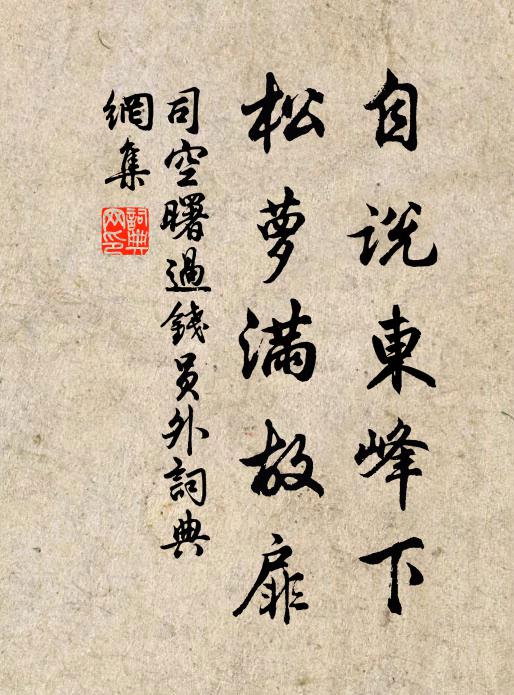 自説東峰下
松蘿滿故扉
司空曙過錢員外詞典
網集
詞典
网印